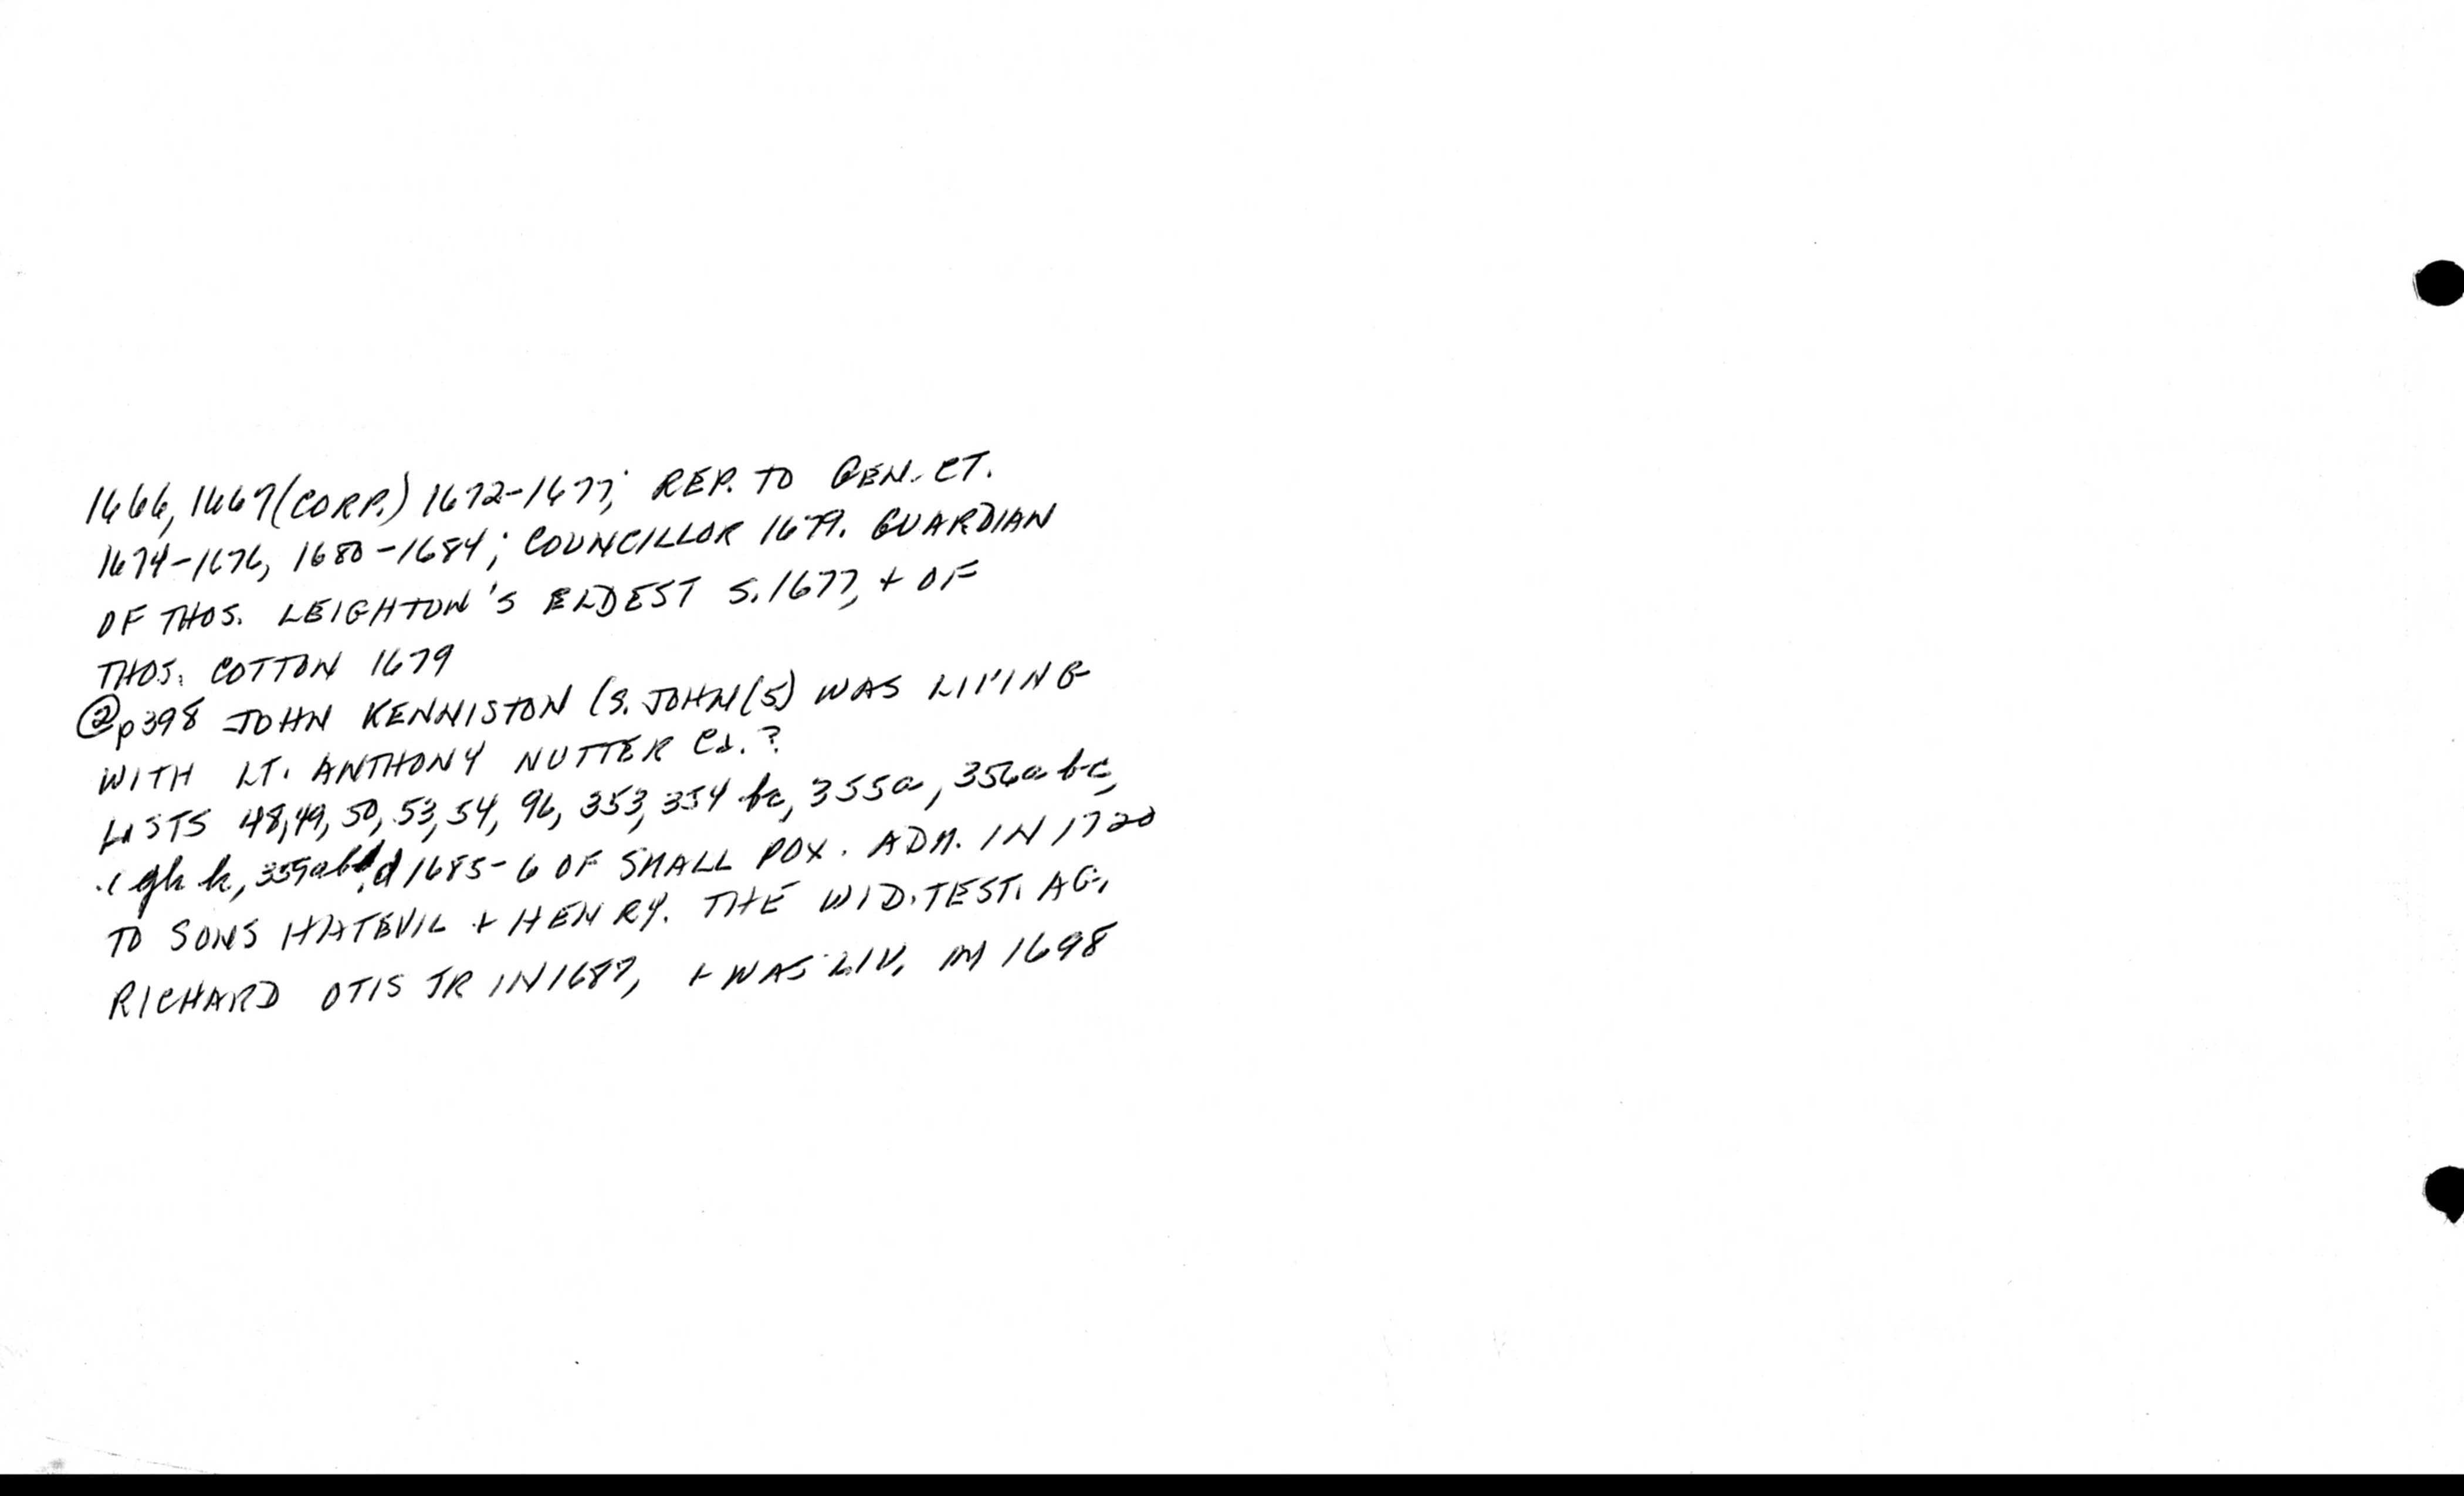 1666, 1667 (CORP.) 1672-1677; REP. TO GEN. CT.
1674-1676, 1680-1684; COUNCILLOR 1679. GUARDIAN
OF THOS. LEIGHTON'S ELDEST S. 1677, + OF
THOS. COTTON 1679
② p398 JOHN KENNISTON (S. JOHN(5) WAS LIVING
WITH LT. ANTHONY NUTTER CJ.?
LISTS 48, 49, 50, 53, 54, 96, 353, 354 bc, 355a, 356a bc,
gh k, 359ab d 1685-6 OF SMALL POX. ADM. IN 1720
TO SONS HATEVIL + HENRY. THE WID. TEST. AG.
RICHARD OTIS JR IN 1687, + WAS LIV. IN 1698